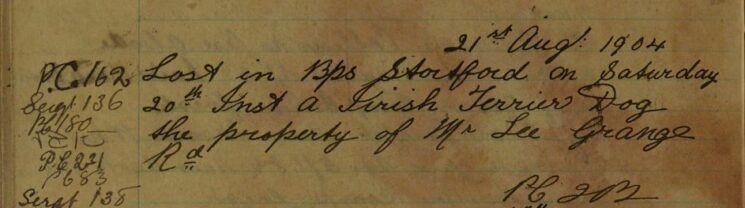 21st Augt. 1904
P.C. 162 Lost in Bps Stortford on Saturday
Sergt 136 20th Inst a Irish Terrier Dog
PC 180 the property of Mr Lee Grange
P.C. 221 Rd
PC 83
Sergt 138